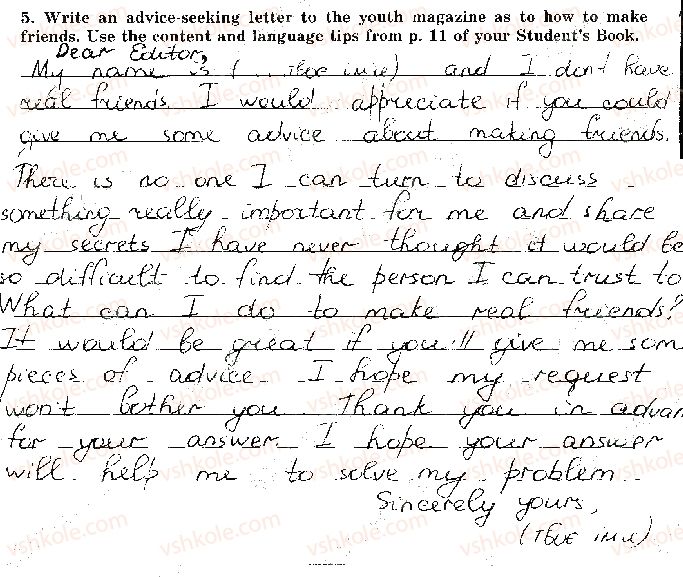 5. Write an advice-seeking letter to the youth magazine as to how to make
friends. Use the content and language tips from p. 11 of your Student's Book.
Dear Editor,
My name is (... твоє ім'я) and I don't have
real friends. I would appreciate if you could
give me some advice about making friends.
There is no one I can turn to discuss
something really important for me and share
my secrets I have never thought it would be
so difficult to find the person I can trust to
What can I do to make real friends?
It would be great if you'll give me som
pieces of advice. I hope my request
won't bother you. Thank you in advan
for your answer. I hope your answer
will help me to solve my problem.
Sincerely yours,
(твоє ім'я)
vshkole.com